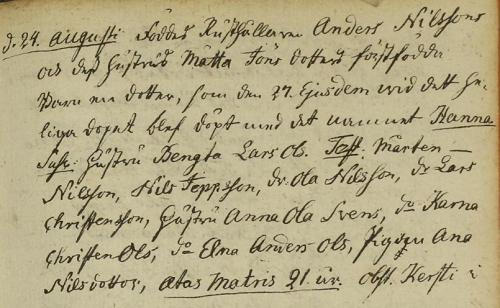 d. 24. Augusti föddes Rusthållaren Anders Nilssons
och dess hustrus Mätta Jöns dotters förstfödda
Barn en dotter, som den 27. Ejusdem wid dett he-
liga dopet blef döpt med det namnet Hanna
Susc: hustru Bengta Lars Ols. Test: Mårten
Nilsson, Nils Jeppsson, dr. Ola Nilsson, dr Lars
Christensson, hustru Anna Ola Svens, do Karna
Christen Ols, do Elna Anders Ols, Pigan Ana
Nilsdotter, ætas Matris 21 år. obst. Kersti